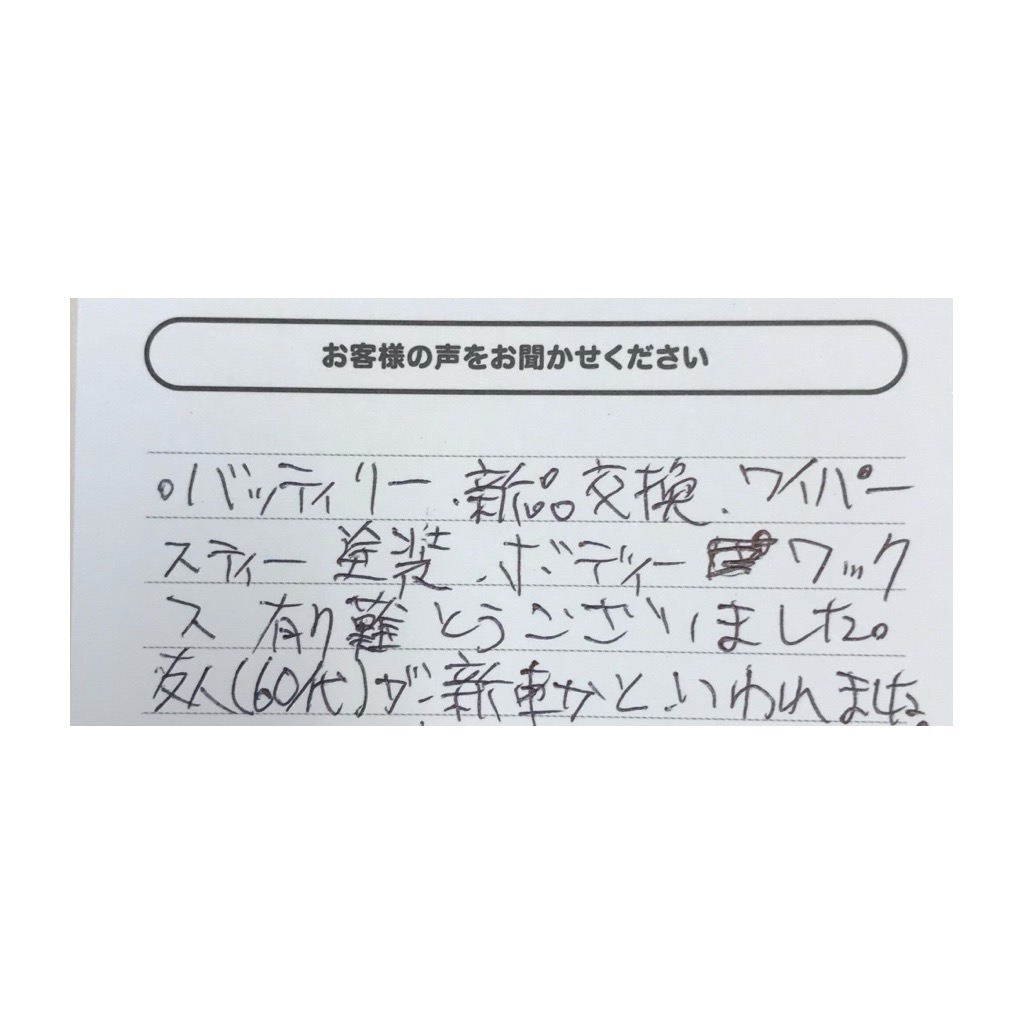 お客様の声をお聞かせください
○バッティリー.新品交換.ワイパー
スティー塗装.ボディーワック
ス有り難とうございました。
友人(60代)が新車かといわれました。